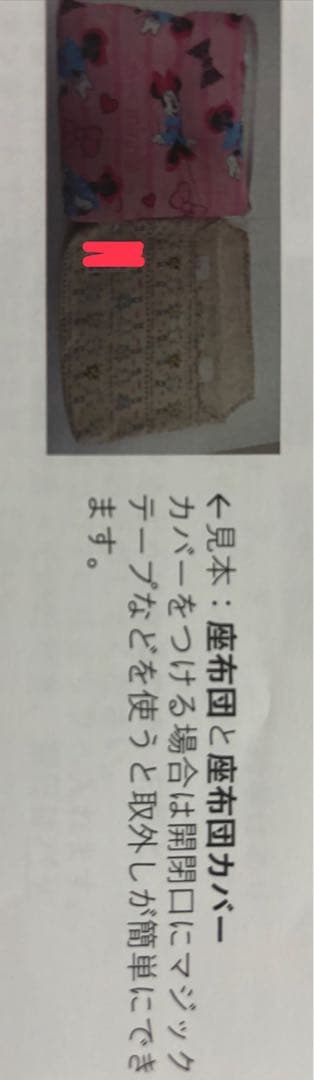 ←見本：座布団と座布団カバー
カバーをつける場合は開閉口にマジック
テープなどを使うと取外しが簡単にでき
ます。